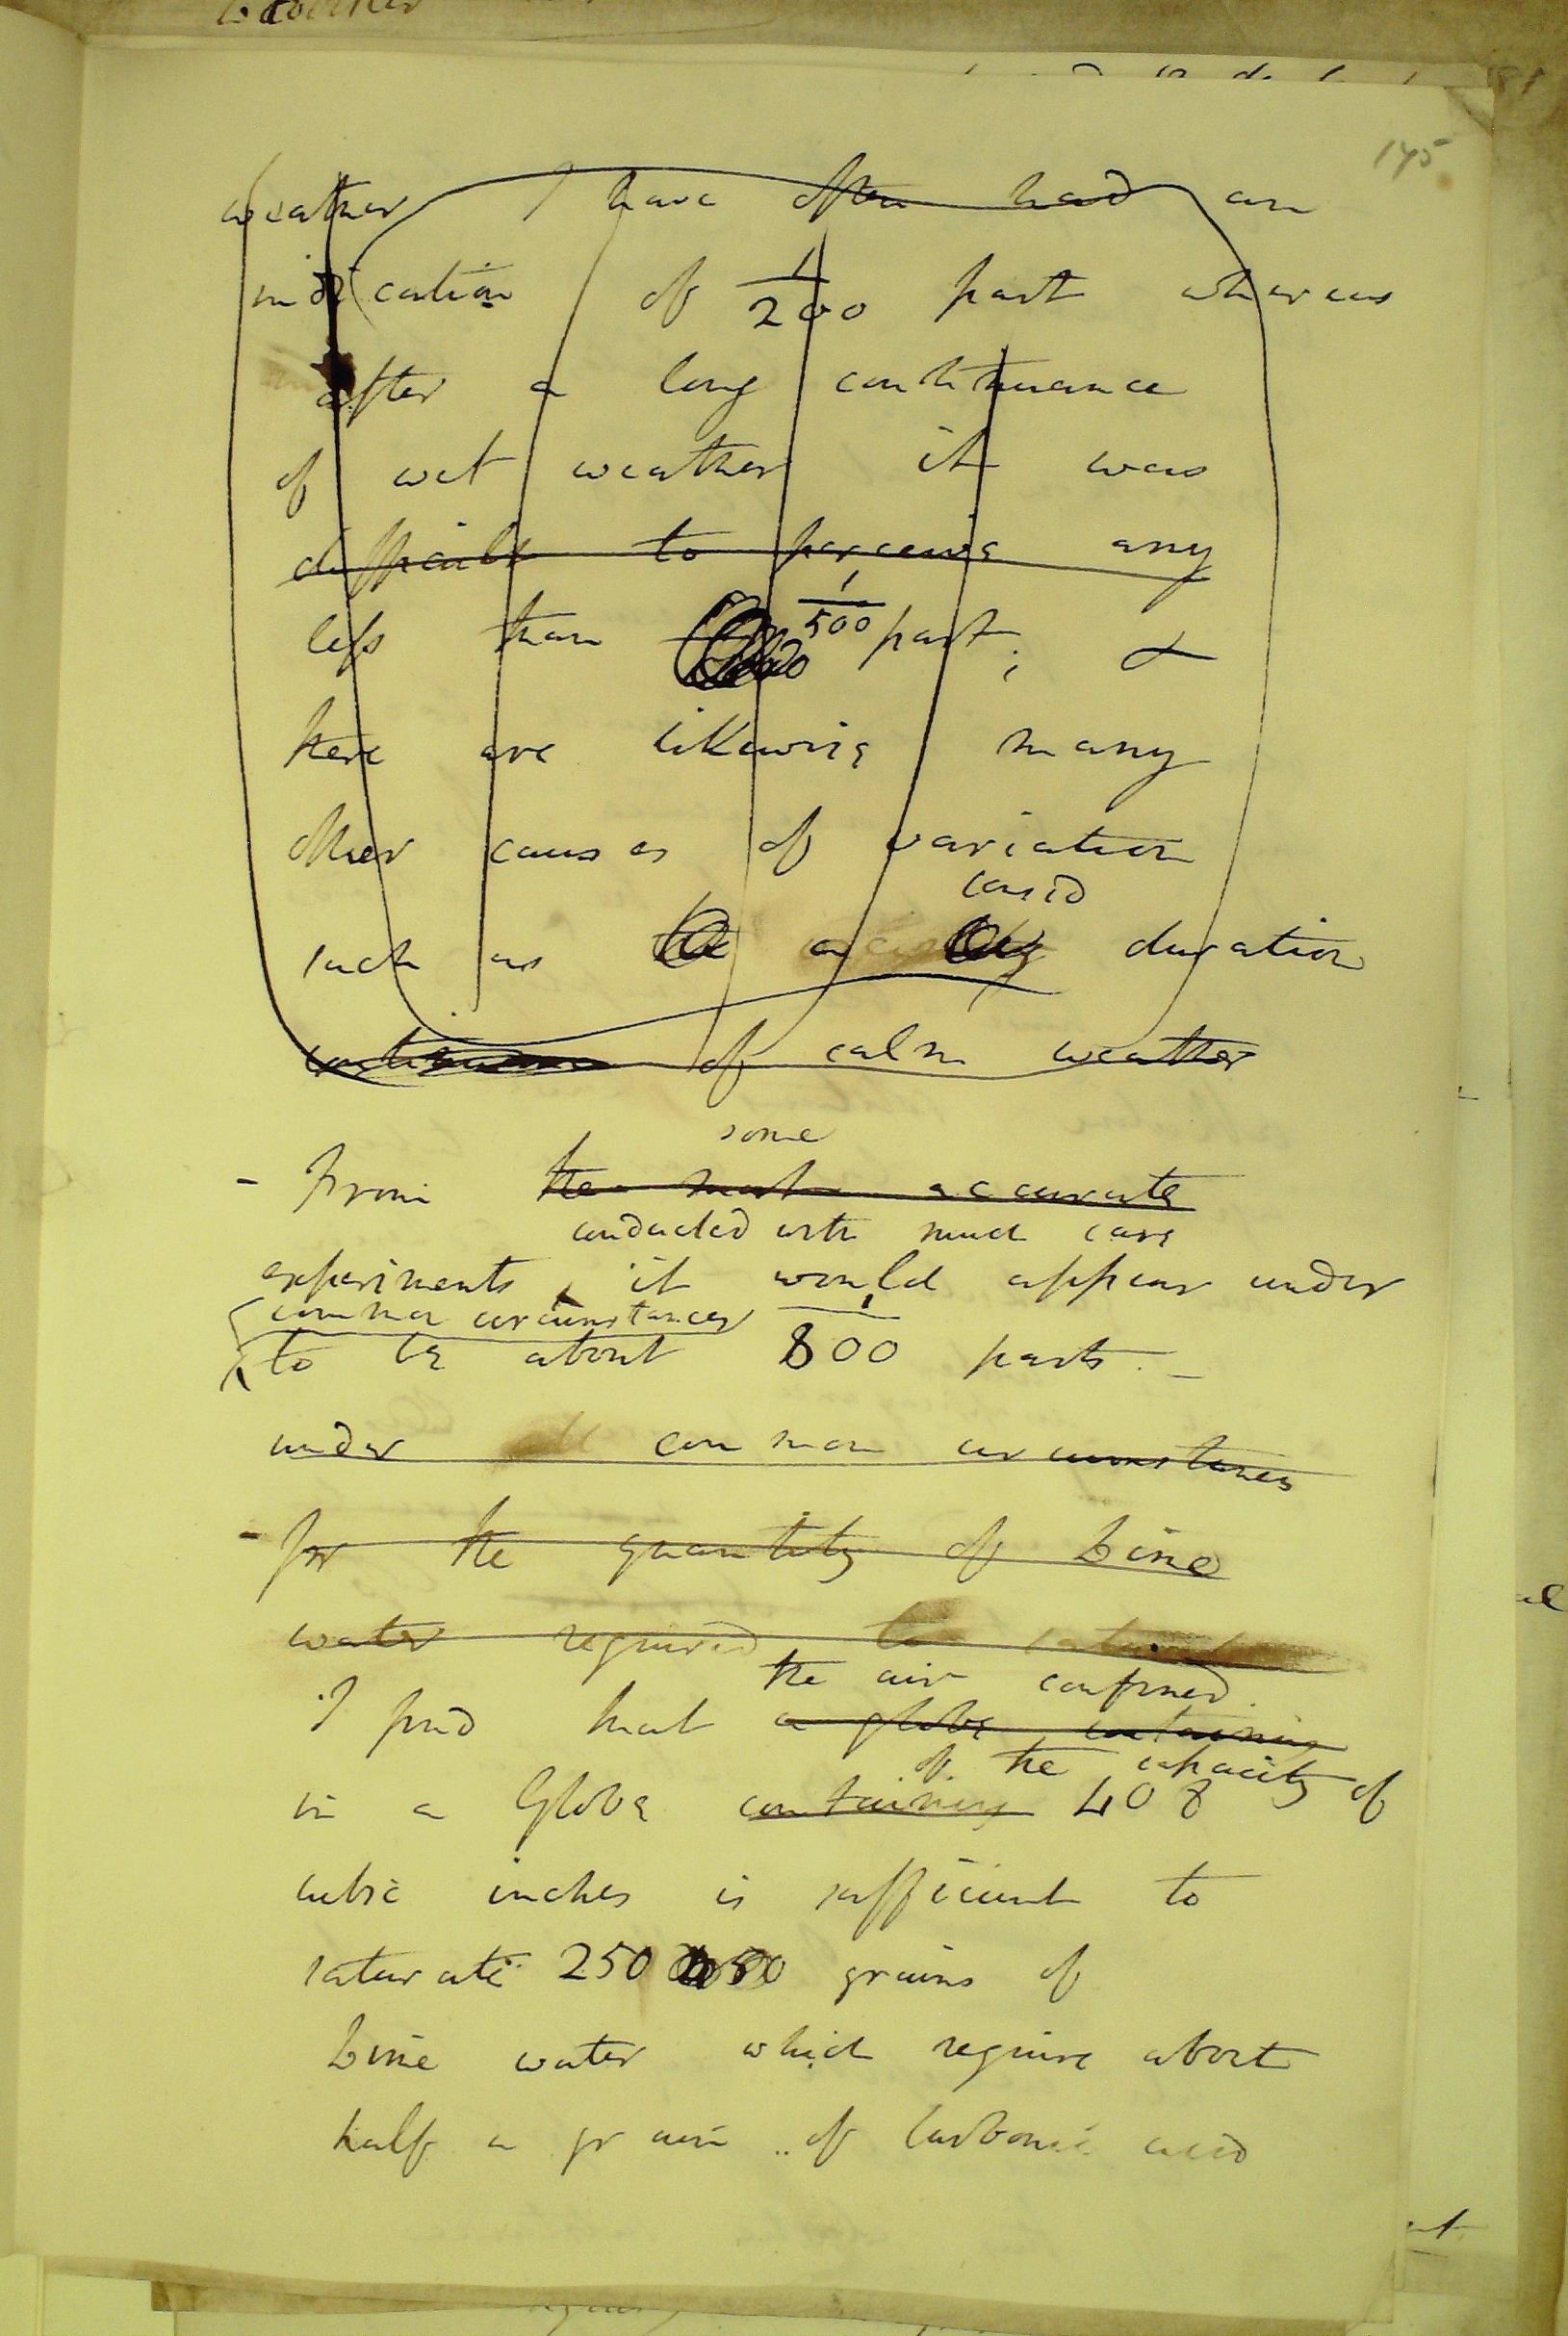 145
weather I have often had an
indication of 1/200 part whereas
after a long continuance
of wet weather it was
difficult to perceive any
less than 1/500 part; &
there are likewise many
other causes of variation
consid
such as a duration
of calm weather
some
- From the most accurate
conducted with much care
experiments, it would appear under
common circumstances
to be about 1/800 parts. -
under common circumstances
- for the quantity of Lime
water required to saturate
the air confined
I find that a globe containing
of the capacity of
in a Globe containing 408
cubic inches is sufficient to
saturate 250 grains of
Lime water which require about
half a grain of Carbonic acid